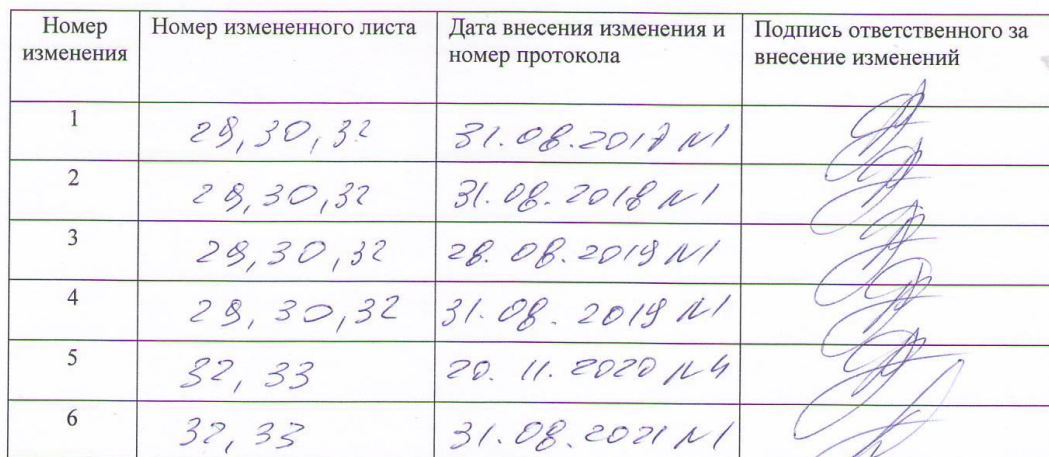 Номер изменения Номер измененного листа Дата внесения изменения и номер протокола Подпись ответственного за внесение изменений
1 29,30,32 31.08.2017 N1
2 29,30,32 31.08.2018 N1
3 29,30,32 28.08.2019 N1
4 29,30,32 31.08.2019 N1
5 32,33 20.11.2020 N4
6 32,33 31.08.2021 N1